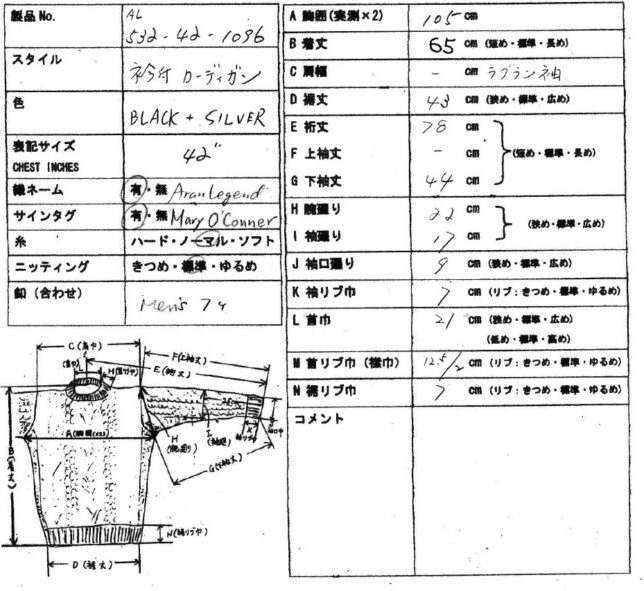 製品No.
AL
532-42-1096
スタイル
衿付 カーディガン
色
BLACK + SILVER
表記サイズ
CHEST INCHES
42"
織ネーム
有・無 Aran Legend
サインタグ
有・無 Mary O'Conner
糸
ハード・ノーマル・ソフト
ニッティング
きつめ・標準・ゆるめ
釦 (合わせ)
Men's 7ヶ
A 胸囲(実測×2) 105 cm
B 着丈 65 cm (短め・標準・長め)
C 肩幅 - cm ラグラン袖
D 裾丈 43 cm (狭め・標準・広め)
E 裄丈 78 cm
F 上袖丈 - cm (短め・標準・長め)
G 下袖丈 44 cm
H 腕廻り 22 cm
(狭め・標準・広め)
I 袖廻り 17 cm
J 袖口廻り 9 cm (狭め・標準・広め)
K 袖リブ巾 7 cm (リブ：きつめ・標準・ゆるめ)
L 首巾 21 cm (狭め・標準・広め)
(低め・標準・高め)
M 首リブ巾 (襟巾) 12.5/2 cm (リブ：きつめ・標準・ゆるめ)
N 裾リブ巾 7 cm (リブ：きつめ・標準・ゆるめ)
コメント
C(肩巾)
F(上袖丈)
E(裄丈)
L
(首巾)
B(着丈)
H
(腕廻り)
I
K
G(下袖丈)
N(裾リブ巾)
D(裾丈)